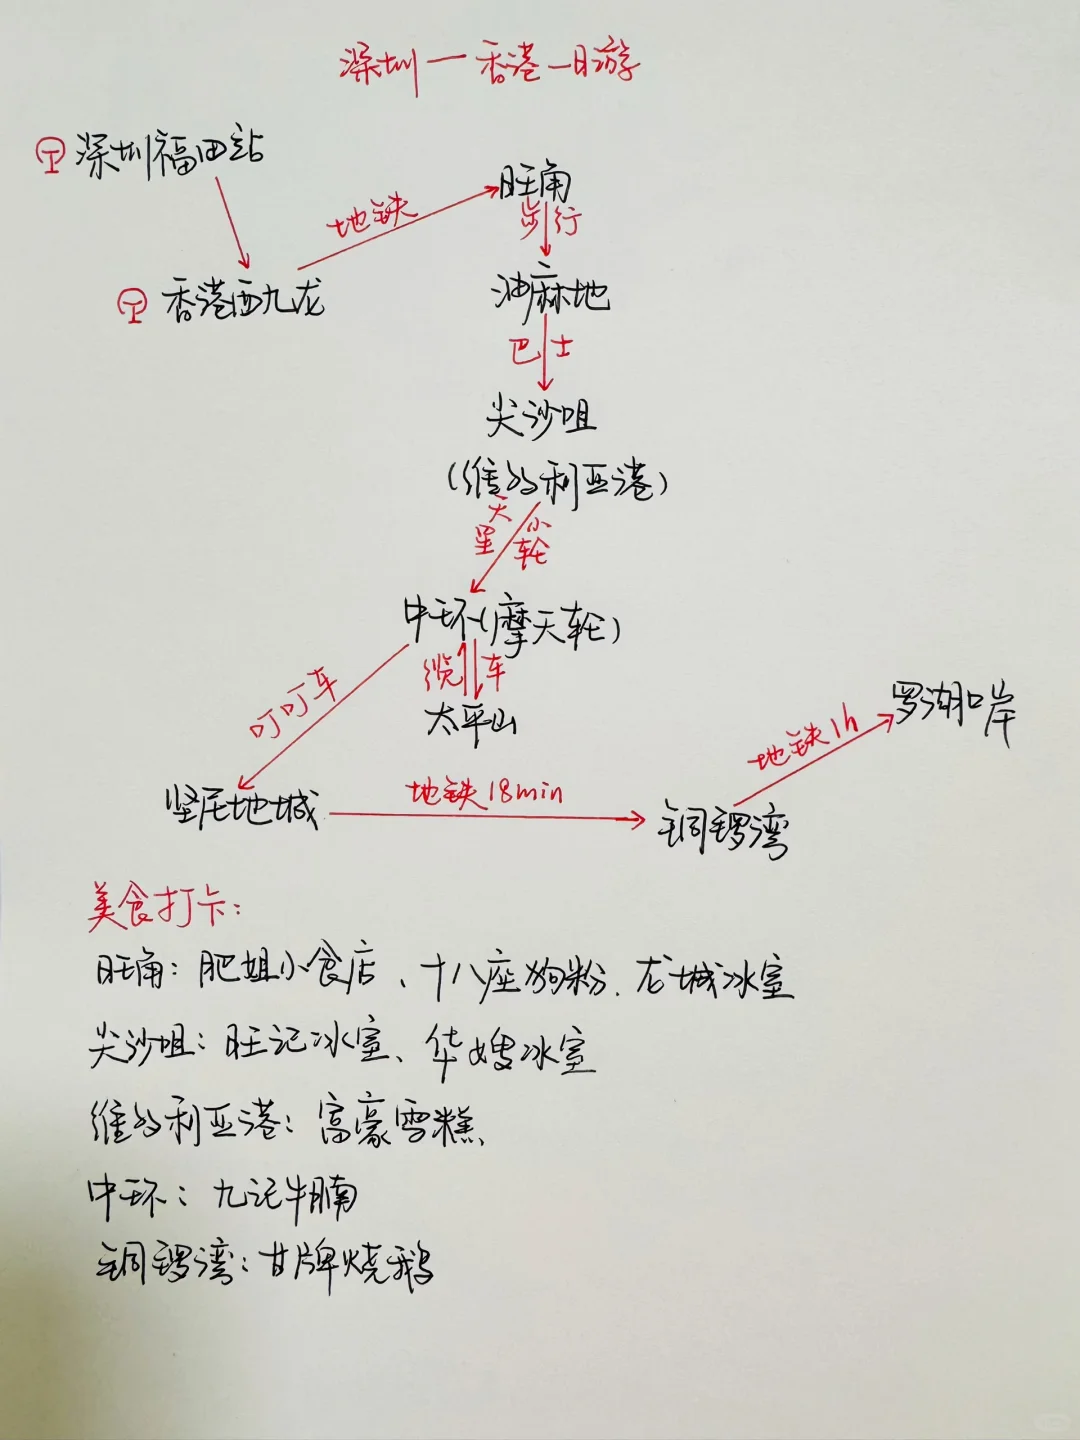 深圳一香港一日游
深圳福田站
旺角
地铁
步行
香港西九龙
油麻地
巴士
尖沙咀
(维多利亚港)
天星小轮
中环(摩天轮)
缆车
叮叮车
太平山
罗湖口岸
地铁1h
坚尼地城
地铁18min
铜锣湾
美食打卡:
旺角:肥姐小食店、十八座狗粉、龙城冰室
尖沙咀:旺记冰室、华嫂冰室
维多利亚港:富豪雪糕、
中环:九记牛腩
铜锣湾:甘牌烧鹅